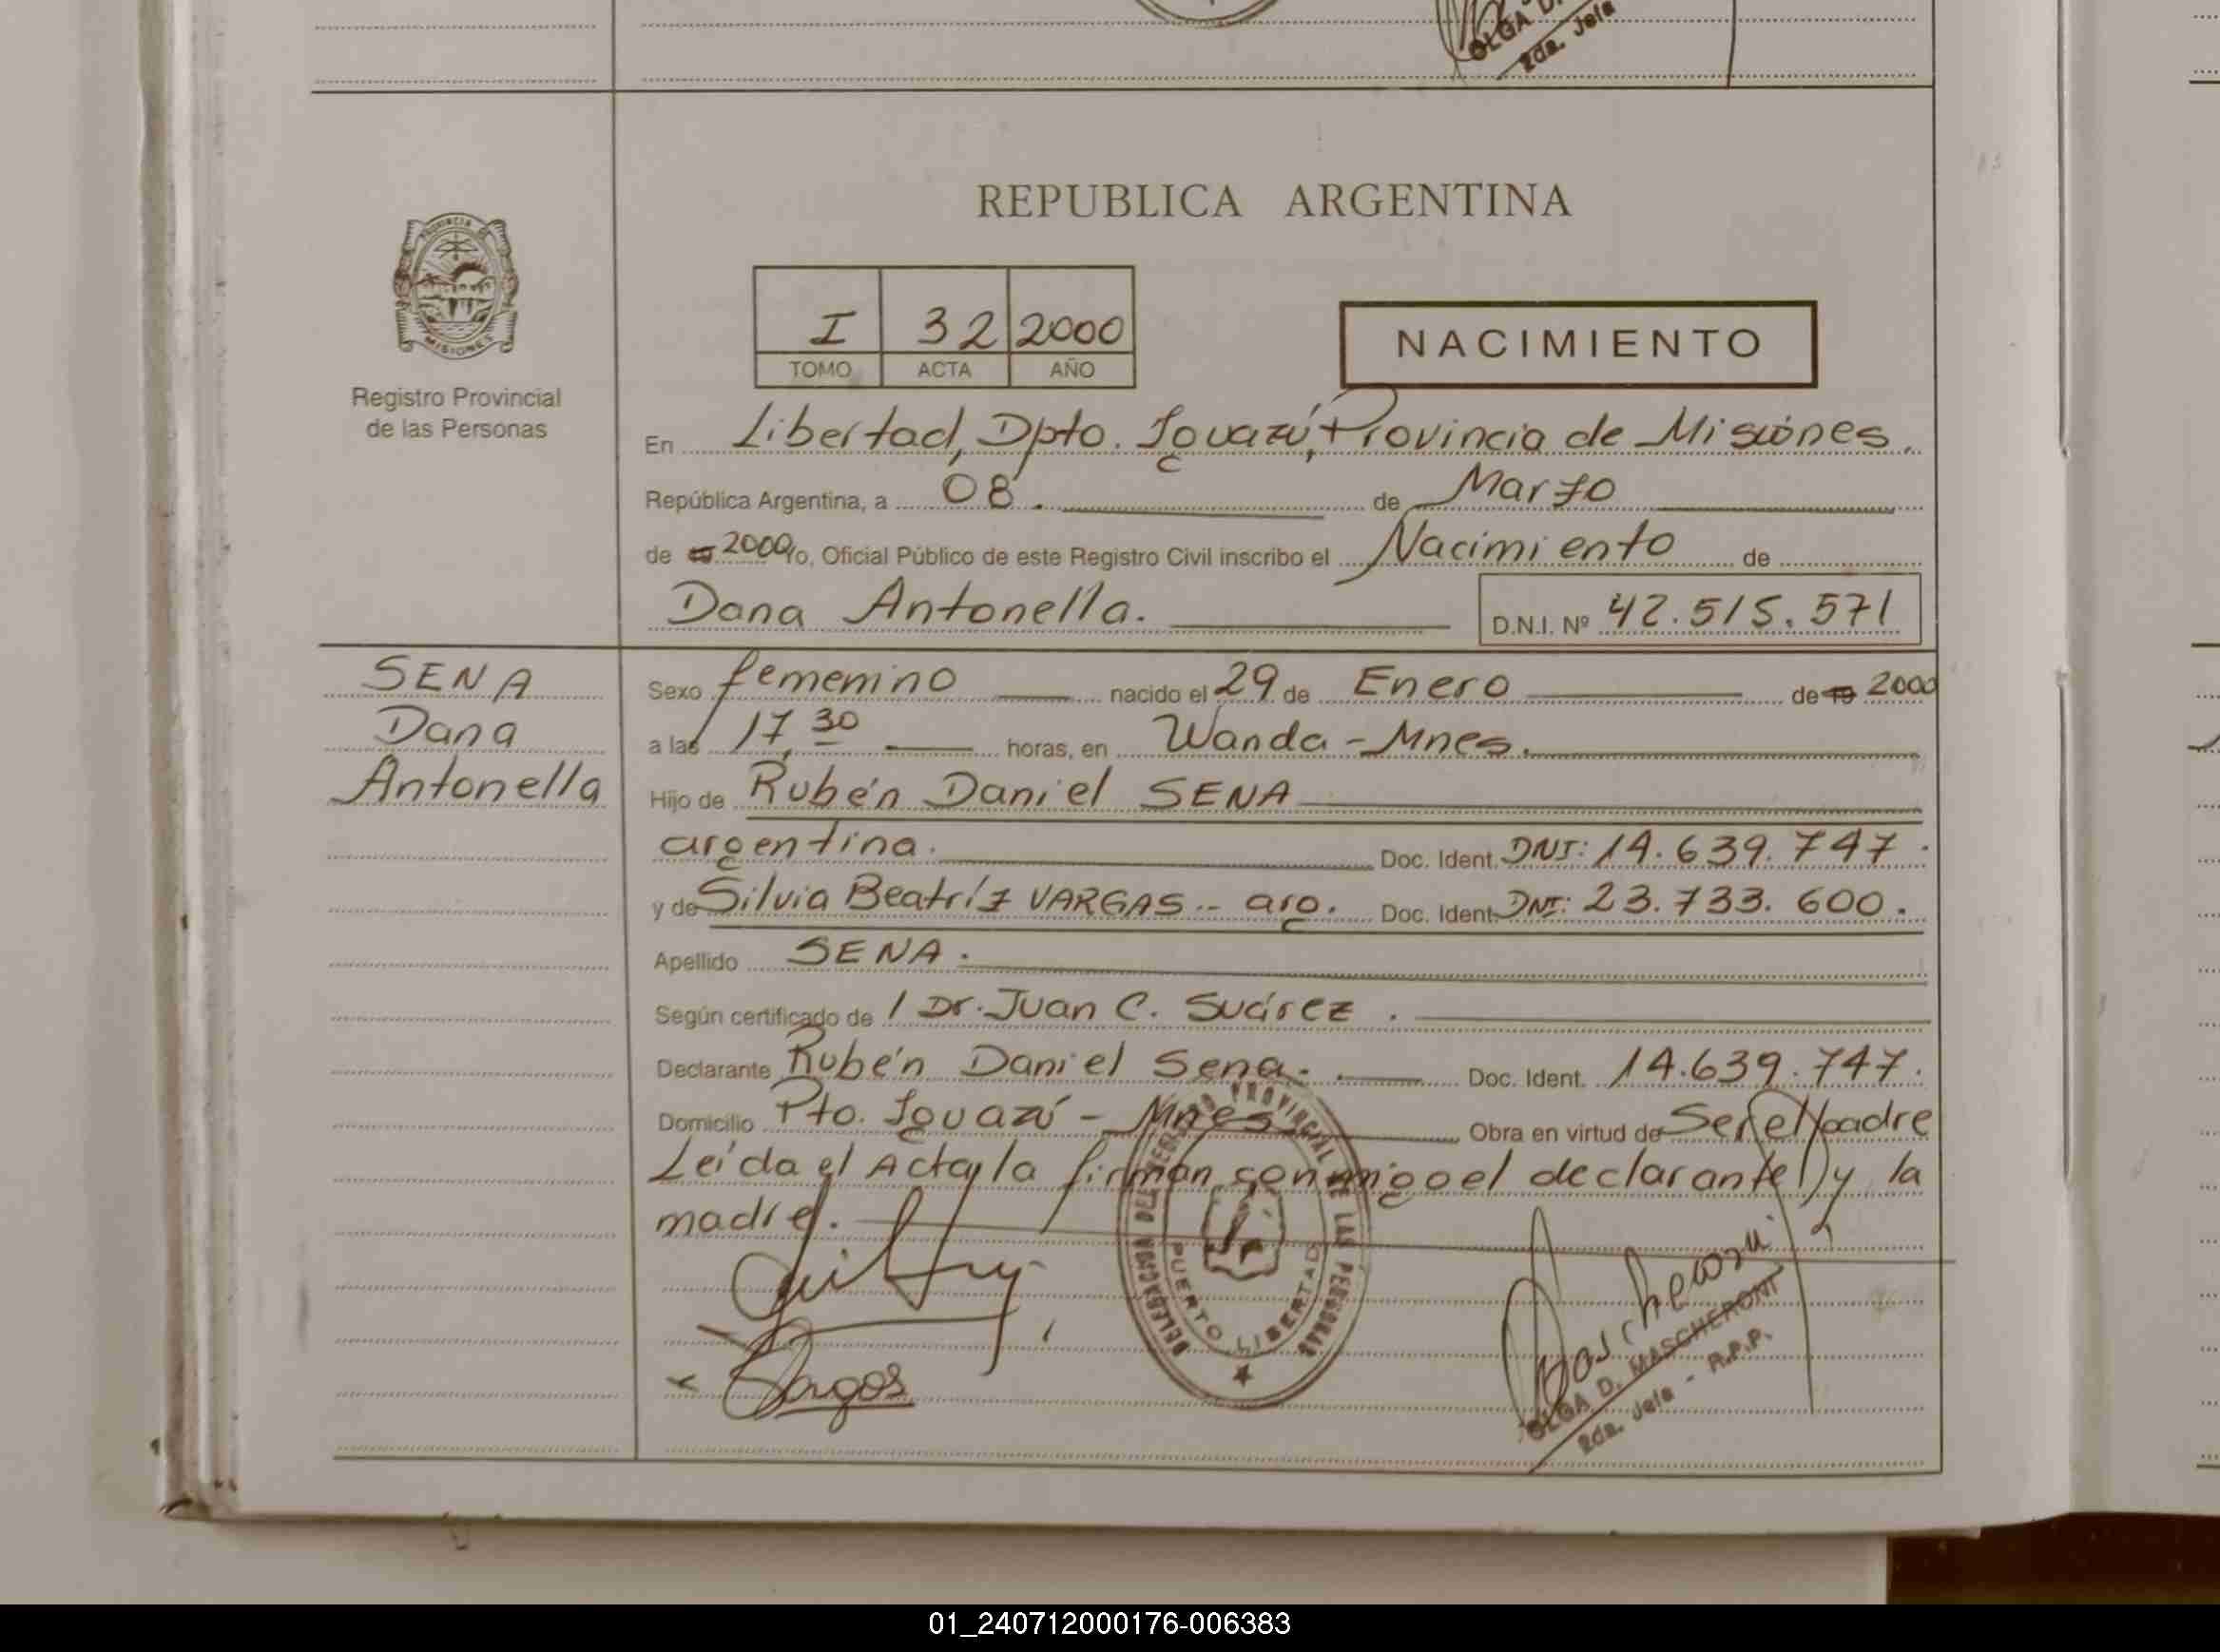 OLGA D.
2da. Jefa
REPUBLICA ARGENTINA
PROVINCIA DE
MISIONES
Registro Provincial
de las Personas
I 32 2000
TOMO ACTA AÑO
NACIMIENTO
En Libertad, Dpto. Iguazú, Provincia de Misiones.
República Argentina, a 08. de Marzo
de 19 2000 Yo, Oficial Público de este Registro Civil inscribo el Nacimiento de
Dana Antonella. D.N.I. Nº 42.515.571
SENA
Dana
Antonella
Sexo femenino nacido el 29 de Enero de 19 2000
a las 17,30 horas, en Wanda - Mnes.
Hijo de Rubén Daniel SENA
argentina. Doc. Ident. DNI: 14.639.747.
y de Silvia Beatríz VARGAS - arg. Doc. Ident. DNI: 23.733.600.
Apellido SENA.
Según certificado de / Dr. Juan C. Suárez.
Declarante Rubén Daniel Sena. Doc. Ident. 14.639.747.
Domicilio Pto. Iguazú - Mnes. Obra en virtud de Ser el padre
Leída el Acta, la firman conmigo el declarante y la
madre.
DELEGACION DEL REGISTRO PROVINCIAL DE LAS PERSONAS
PUERTO LIBERTAD
Mascheroni
OLGA D. MASCHERONI
2da. Jefa - R.P.P.
01_240712000176-006383